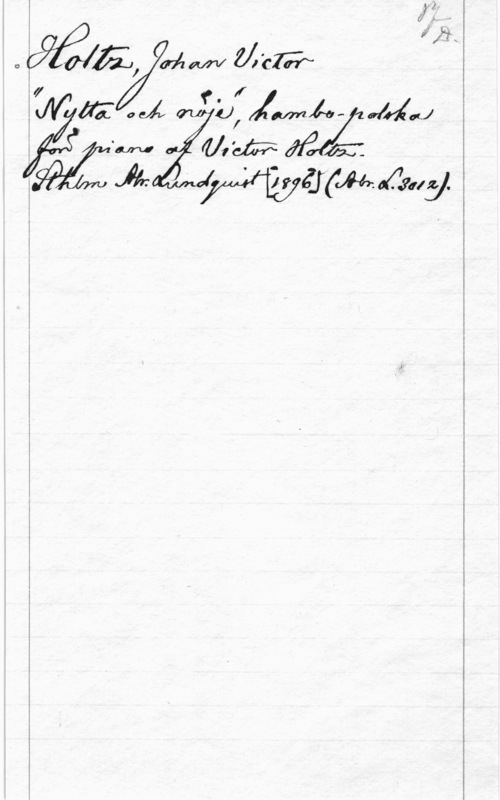 Holtz, Johan Victor
"Nytta och nöje", hambo-polska
för piano af Victor Holtz.
Sthlm Abr. Lundquist [1896] (Abr. L. 3012).